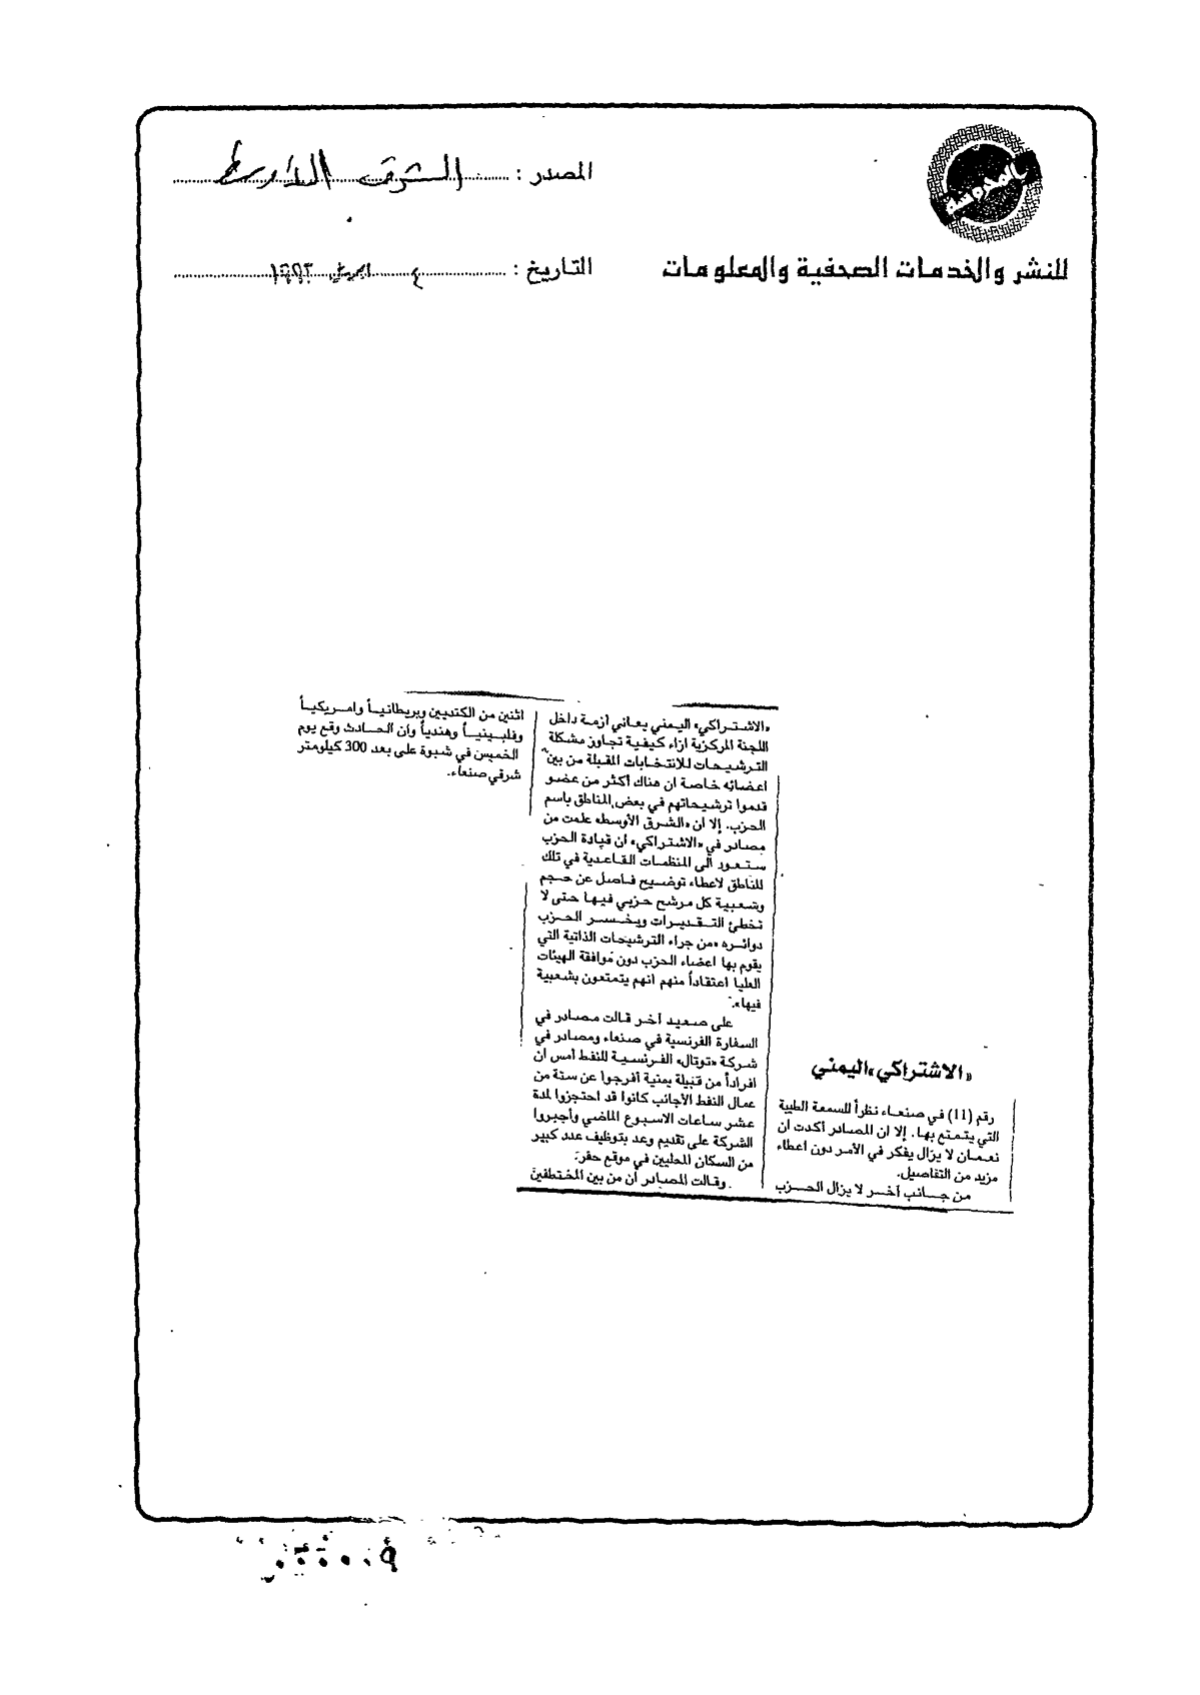 المصدر : الشرق الأوسط
للنشر والخدمات الصحفية والمعلومات
التاريخ : ٤ ابريل ١٩٩٣
«الاشتراكي» اليمني
رقم (11) في صنعاء نظراً للسمعة الطيبة
التي يتمتع بها. إلا ان المصادر أكدت ان
نعمان لا يزال يفكر في الأمر دون اعطاء
مزيد من التفاصيل.
من جانب أخر لا يزال الحزب
«الاشتراكي» اليمني يعاني ازمة داخل
اللجنة المركزية ازاء كيفية تجاوز مشكلة
الترشيحات للانتخابات المقبلة من بين
اعضائه خاصة ان هناك أكثر من عضو
قدموا ترشيحاتهم في بعض المناطق باسم
الحزب. إلا ان «الشرق الأوسط» علمت من
مصادر في «الاشتراكي» أن قيادة الحزب
ستعود الى المنظمات القاعدية في تلك
المناطق لاعطاء توضيح فاصل عن حجم
وشعبية كل مرشح حزبي فيها حتى لا
تخطئ التقديرات ويخسر الحزب
دوائره «من جراء الترشيحات الذاتية التي
يقوم بها اعضاء الحزب دون موافقة الهيئات
العليا اعتقاداً منهم انهم يتمتعون بشعبية
فيها».
على صعيد أخر قالت مصادر في
السفارة الفرنسية في صنعاء ومصادر في
شركة «توتال» الفرنسية للنفط أمس ان
افراداً من قبيلة يمنية أفرجوا عن ستة من
عمال النفط الأجانب كانوا قد احتجزوا لمدة
عشر ساعات الاسبوع الماضي وأجبروا
الشركة على تقديم وعد بتوظيف عدد كبير
من السكان المحليين في موقع حفر.
وقالت المصادر أن من بين المختطفين
اثنين من الكنديين وبريطانياً وامريكياً
وفلبينياً وهندياً وان الحادث وقع يوم
الخميس في شبوة على بعد 300 كيلومتر
شرقي صنعاء.